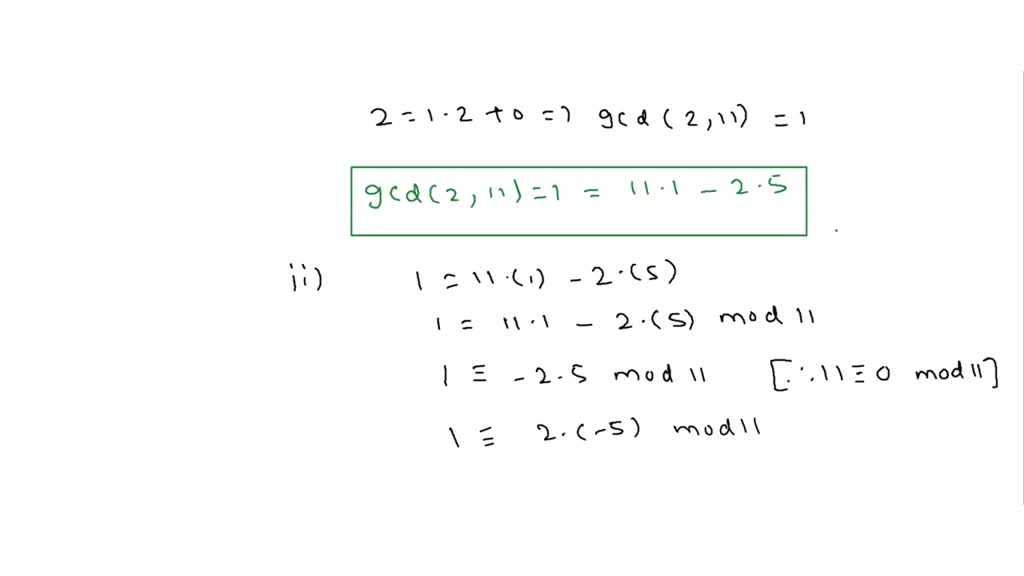 2 = 1·2 + 0 => gcd(2,11) = 1
gcd(2,11) = 1 = 11·1 - 2·5
ii) 1 = 11·(1) - 2·(5)
1 = 11·1 - 2·(5) mod 11
1 ≡ -2·5 mod 11 [∵ 11 ≡ 0 mod 11]
1 ≡ 2·(-5) mod 11